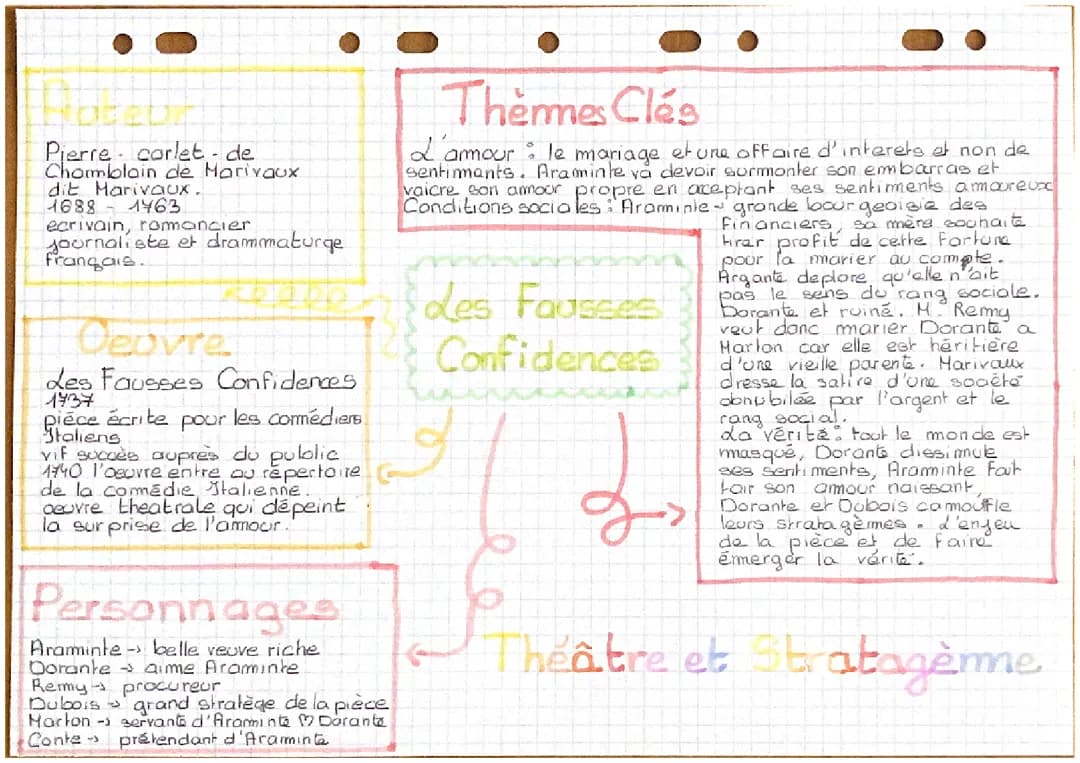 Auteur
Pierre - carlet - de
Chamblain de Marivaux
dit Marivaux.
1688 - 1763
écrivain, romancier
journaliste et drammaturge
français.
Oeuvre
Les Fausses Confidences
1737
pièce écrite pour les comédiens
Italiens
vif succès auprès du public
1740 l'oeuvre entre au répertoire
de la comédie Italienne.
oeuvre theatrale qui dépeint
la surprise de l'amour.
Personnages
Araminte → belle veuve riche
Dorante → aime Araminte
Remy → procureur
Dubois → grand stratège de la pièce
Marton → servante d'Araminte ♡ Dorante
Conte → prétendant d'Araminte
Les Fausses
Confidences
Thèmes Clés
L'amour : le mariage et une affaire d'interets et non de
sentiments. Araminte va devoir surmonter son embarras et
vaicre son amour propre en aceptant ses sentiments amoureux
Conditions sociales : Araminte → grande bourgeoisie des
financiers, sa mère souhaite
tirer profit de cette fortune
pour la marier au compte.
Argante deplore qu'elle n'ait
pas le sens du rang sociale.
Dorante et ruiné. M. Remy
veut donc marier Dorante a
Marton car elle est héritière
d'une vieille parente. Marivaux
dresse la satire d'une société
obnubilée par l'argent et le
rang social.
La vérité : tout le monde est
masqué, Dorante dissimule
ses sentiments, Araminte fait
tair son amour naissant,
Dorante et Dubois camouffle
leurs stratagèmes. L'enjeu
de la pièce et de faire
émerger la vérité.
Théâtre et Stratagème